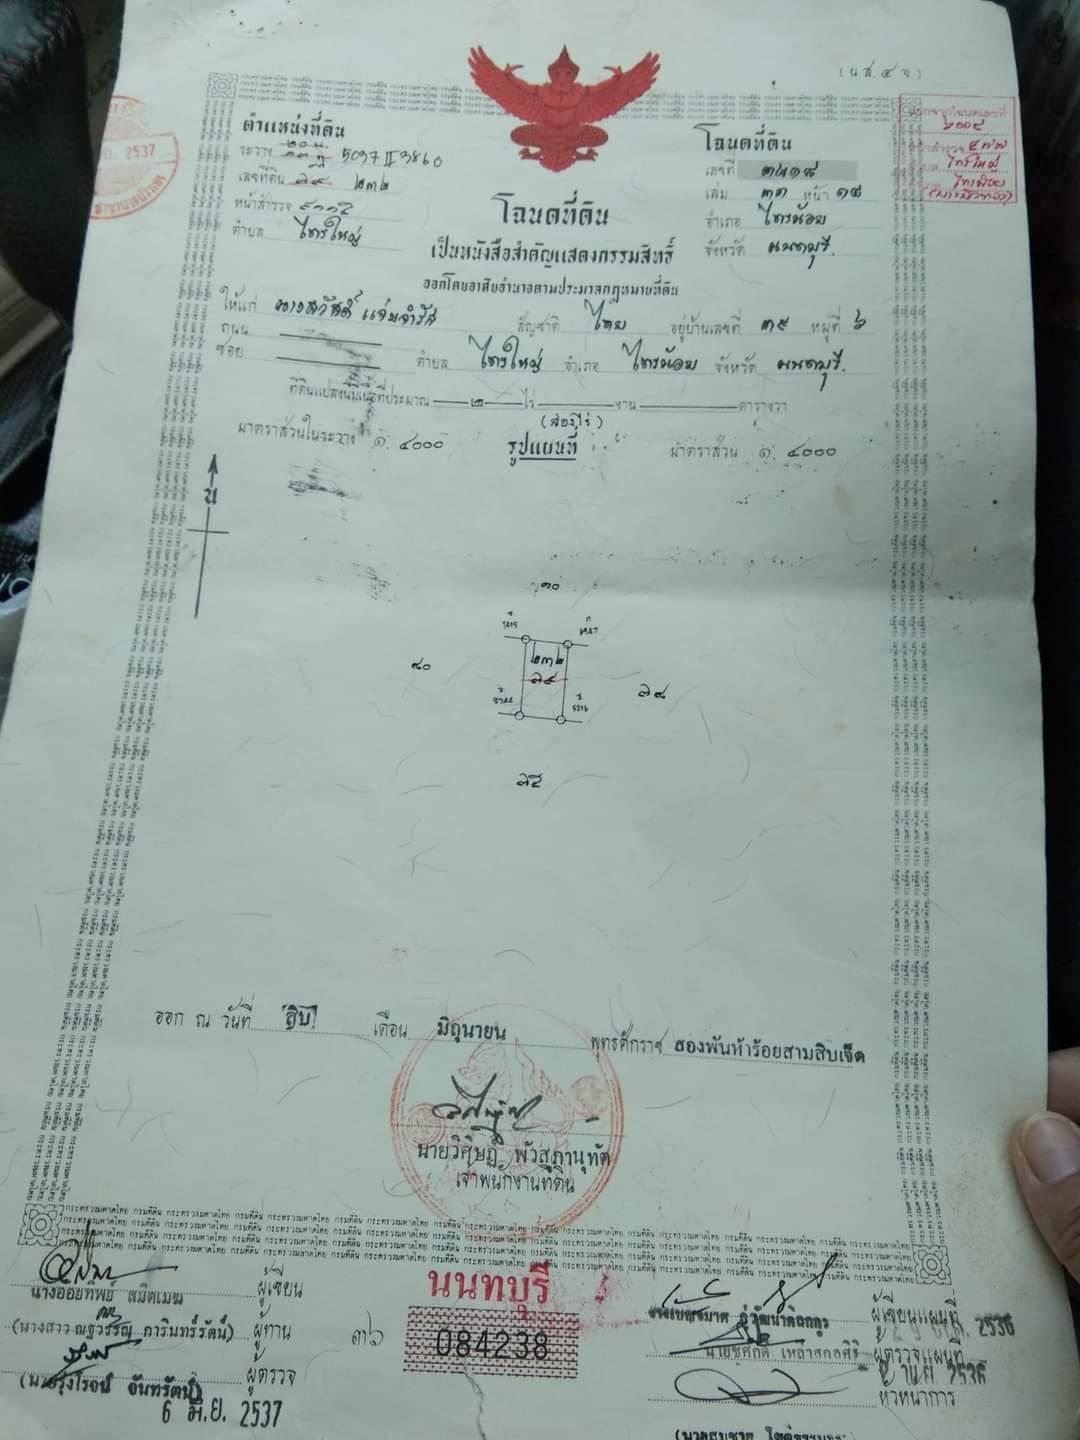 (น.ส.๔ จ.)
ตำแหน่งที่ดิน
ระวาง 5037 II 3860
เลขที่ดิน ๒๓๒
หน้าสำรวจ
ตำบล ไทรใหญ่
โฉนดที่ดิน
เลขที่
เล่ม ๓๓ หน้า ๑๘
อำเภอ ไทรน้อย
จังหวัด นนทบุรี.
ไทรใหญ่
2537
โฉนดที่ดิน
เป็นหนังสือสำคัญแสดงกรรมสิทธิ์
ออกโดยอาศัยอำนาจตามประมวลกฎหมายที่ดิน
ให้แก่ นางสวัสดิ์ แจ่มจำรัส สัญชาติ ไทย อยู่บ้านเลขที่ ๓๙ หมู่ที่ ๖
ถนน
ซอย ตำบล ไทรใหญ่ อำเภอ ไทรน้อย จังหวัด นนทบุรี.
ที่ดินแปลงนี้มีเนื้อที่ประมาณ ๒ ไร่ งาน ตารางวา
(สองไร่)
มาตราส่วนในระวาง ๑:๔๐๐๐ รูปแผนที่ มาตราส่วน ๑:๔๐๐๐
น
๓๐
๒๓๒
๘๐
ออก ณ วันที่ สิบ เดือน มิถุนายน พุทธศักราช สองพันห้าร้อยสามสิบเจ็ด
เจ้าพนักงานที่ดิน
นนทบุรี
084238
๓๖
ผู้เขียน
นางอ้อยทิพย์ สมิตเมฆ
(นางสาว ณฐวรรัญ ภารินทร์รัตน์) ผู้ทาน
ผู้ตรวจ
(นายรุ่งโรจน์ จันทรัตน์)
6 มิ.ย. 2537
ผู้เขียนแผนที่
2536
ผู้ตรวจแผนที่
2536
หัวหน้าการ